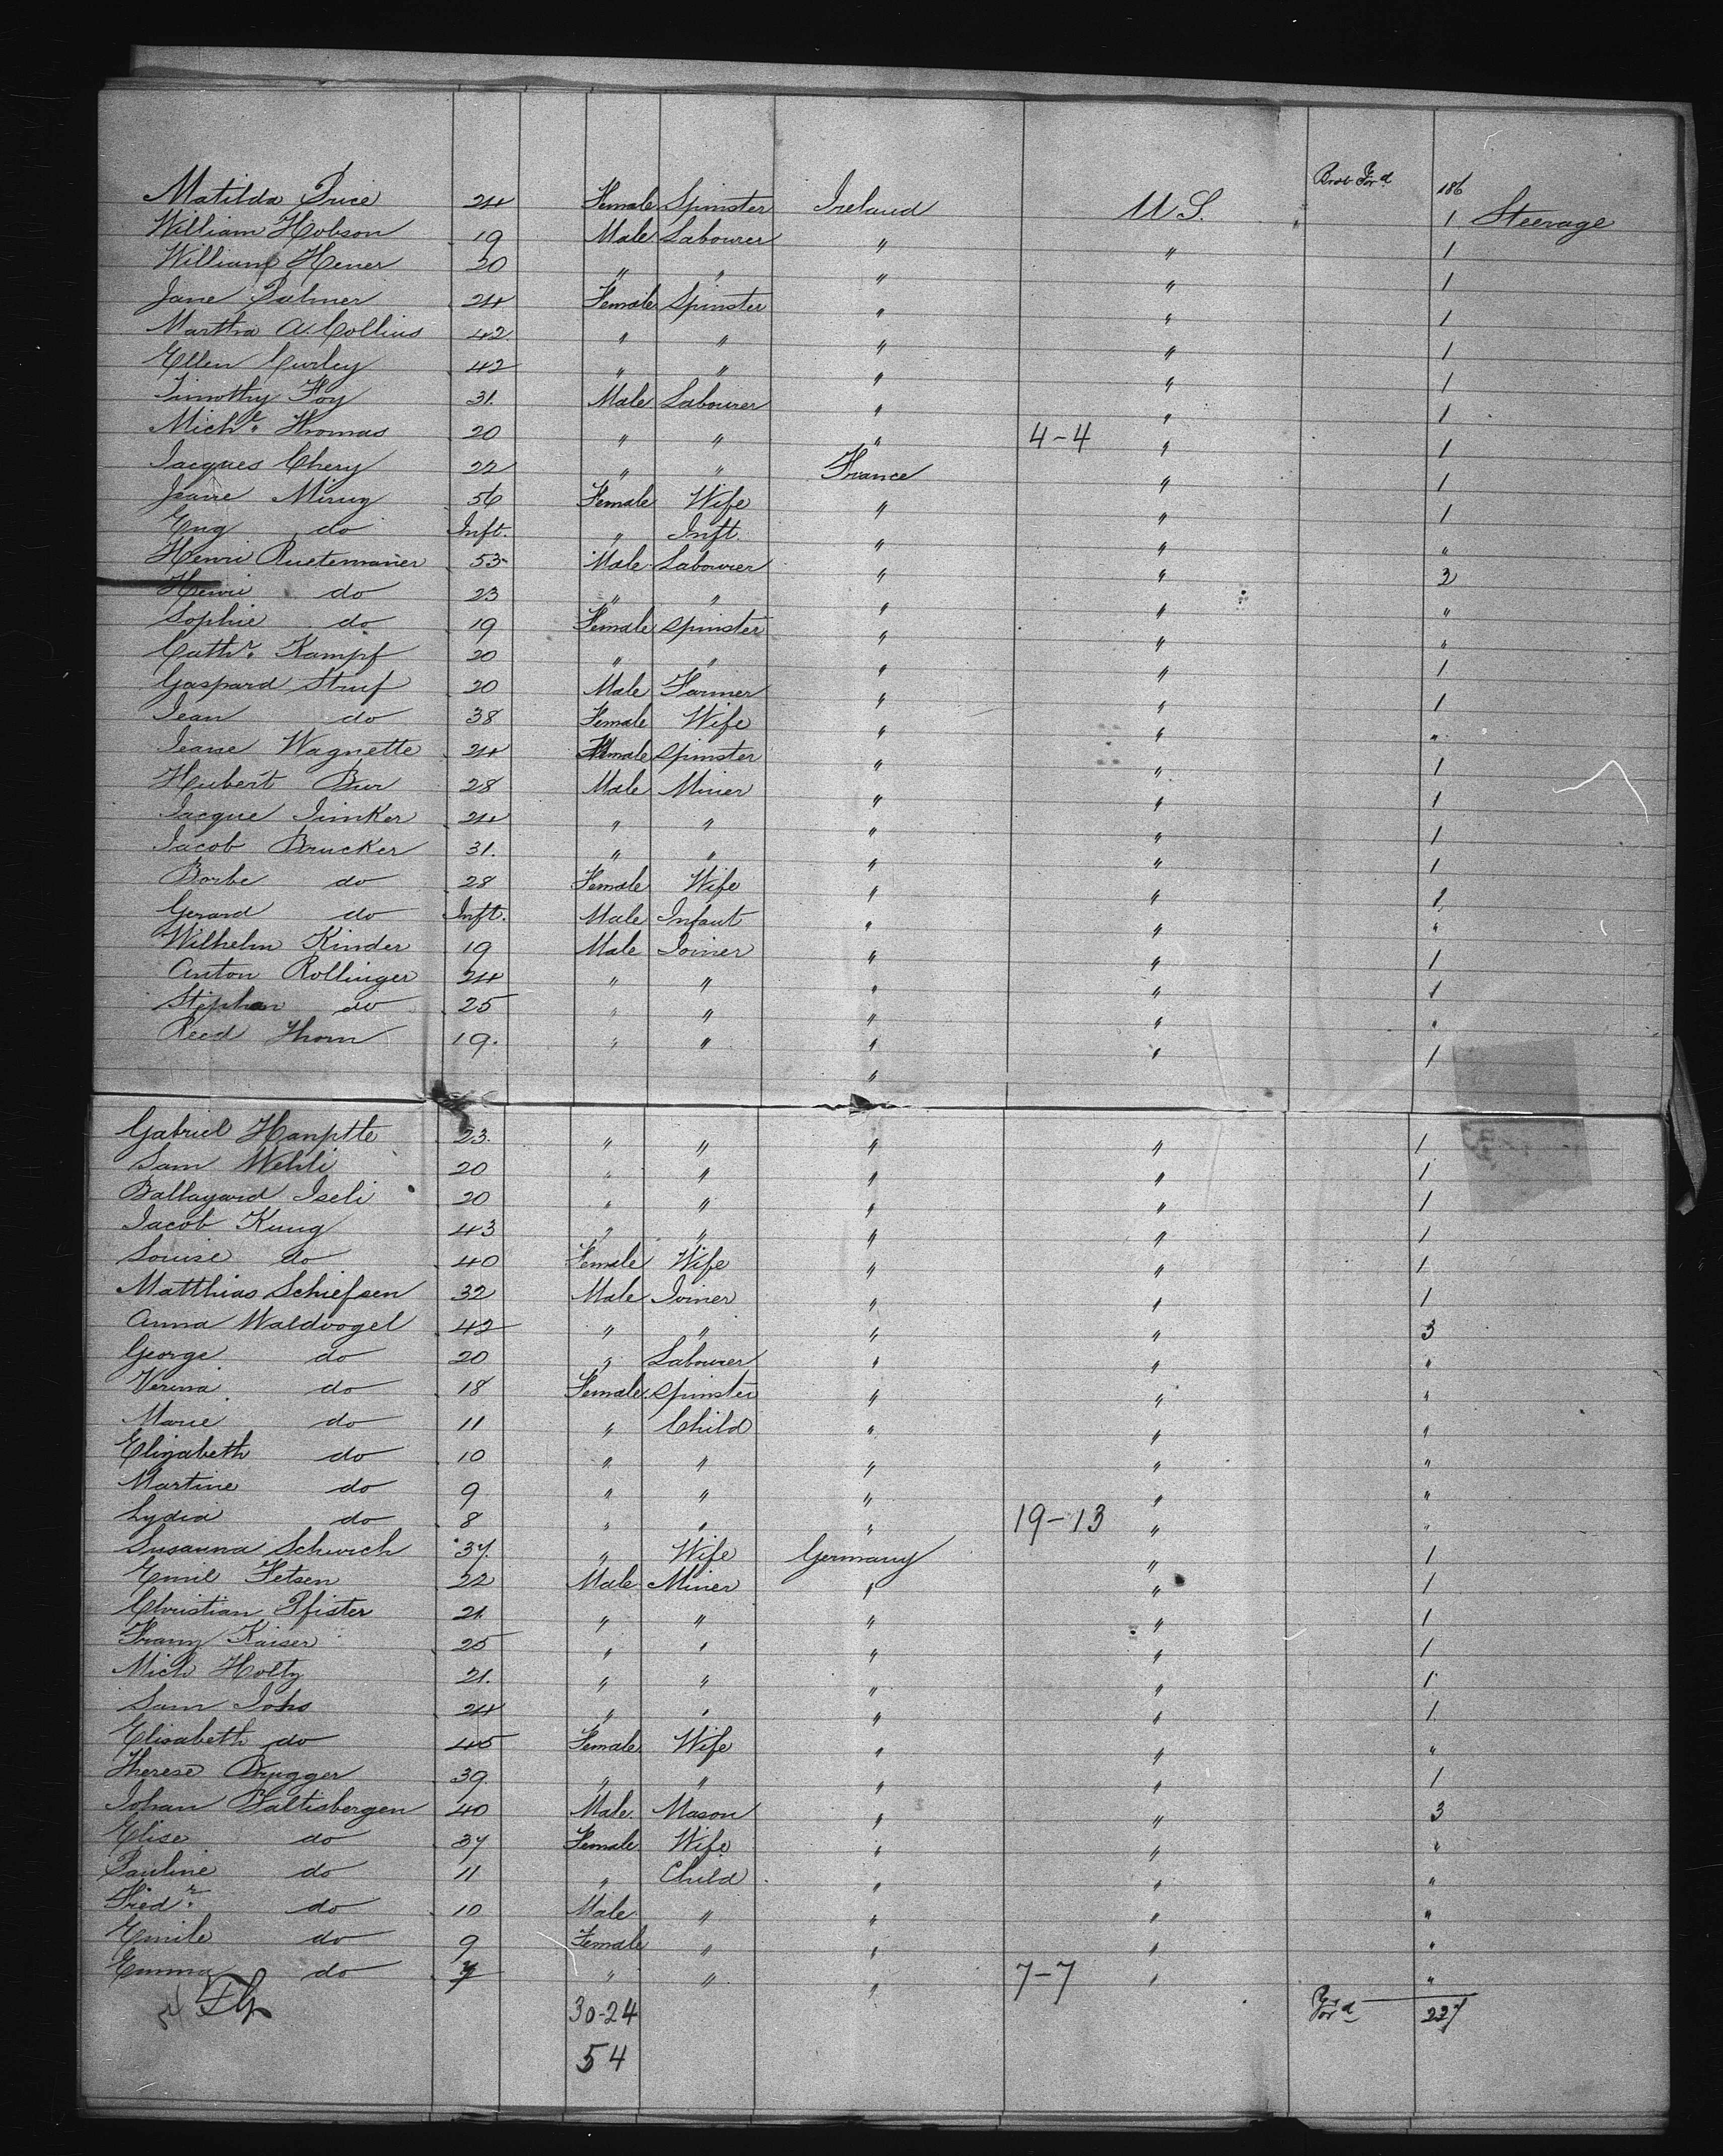 Brot Ford 186
Matilda Price 24 Female Spinster Ireland U S. " 1 Steerage
William Hobson 19 Male Labourer " " 1
William Hener 20 " " " " 1
Jane Palmer 24 Female Spinster " " 1
Martha A. Collins 42 " " " " 1
Ellen Curley 42 " " " " 1
Timothy Foy 31. Male Labourer " " 1
Michl. Thomas 20 " " " 4-4 " 1
Jacques Chery 22 " " France " 1
Jeane 56 Female Wife " " 1
Eug do Inft. " Inft. " " "
Henri Ruetemanier 53 Male Labourer " " 3
Henri do 23 " " " " "
Sophie do 19 Female Spinster " " "
Cathr. Kampf 20 " " " " 1
Gaspard Struf 20 Male Farmer " " 1
Jean do 38 Female Wife " " "
Jeane Wagnette 24 Female Spinster " " 1
Hubert Bur 28 Male Miner " " 1
Jacque Junker 24 " " " " 1
Jacob Brucker 31. " " " " 1
Barbe do 28 Female Wife " " 1
Gerard do Inft. Male Infant " " "
Wilhelm Kinder 19 Male Joiner " " 1
Anton Rollinger 24 " " " " 1
Stephan do 25 " " " " "
Reed Thom 19. " " " " 1
"
Gabriel Hanptte 23. " " " " 1
Sam Wehli 20 " " " " 1
Ballagard Iseli 20 " " " " 1
Jacob Kung 43 " " " " 1
Louise do 40 Female Wife " " 1
Matthias Schiefsen 32 Male Joiner " " 1
Anna Waldvogel 42 " " " " 3
George do 20 " Labourer " " "
Verena do 18 Female Spinster " " "
Marie do 11 " Child " " "
Elizabeth do 10 " " " " "
Martine do 9 " " " " "
Lydia do 8 " " " 19-13 " "
Susanna Schwich 37. " Wife Germany " 1
Emil Fetsen 22 Male Miner " " 1
Christian Pfister 21. " " " " 1
Franz Kaiser 25 " " " " 1
Mich Holtz 21. " " " " 1
Sam Johs 24 " " " " 1
Elisabeth do 45 Female Wife " " "
Therese Brugger 39 " " " " 1
Johan Saltisbergen 40 Male Mason " " 3
Elise do 37 Female Wife " " "
Pauline do 11 " Child " " "
Fredr. do 10 Male " " " "
Emile do 9 Female " " " "
Emma do 7 " " " 7-7 " "
30-24 Ford 227
54